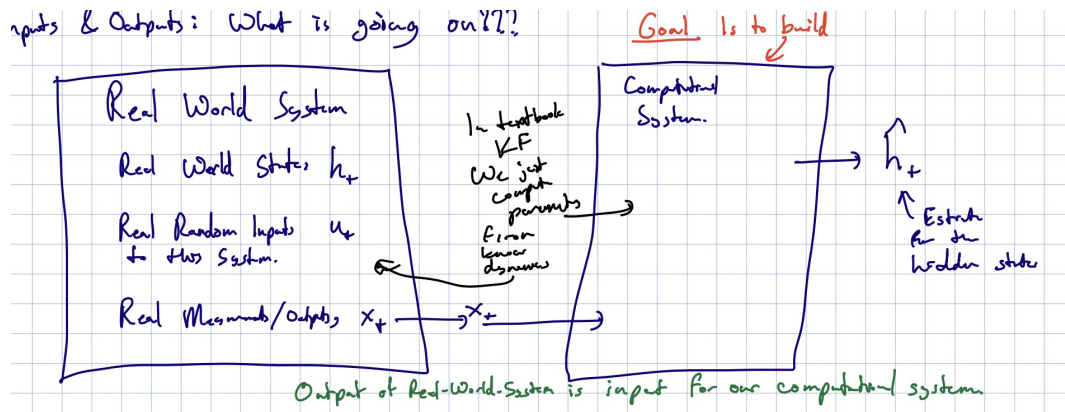 nputs & Outputs: What is going on????
Goal Is to build
Real World System
Real World States h_t
Real Random Inputs u_t
to this System.
Real Measurements/Outputs, x_t
x_t
In textbook
KF
We just
comput
parameters
from
known
dynamics
Computational
System.
ĥ_t
Estimate
for the
hidden state
Output of Real-World-System is input for our computational system.